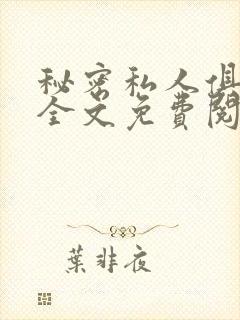 秘密私人俱
全文免費閱
葉非夜